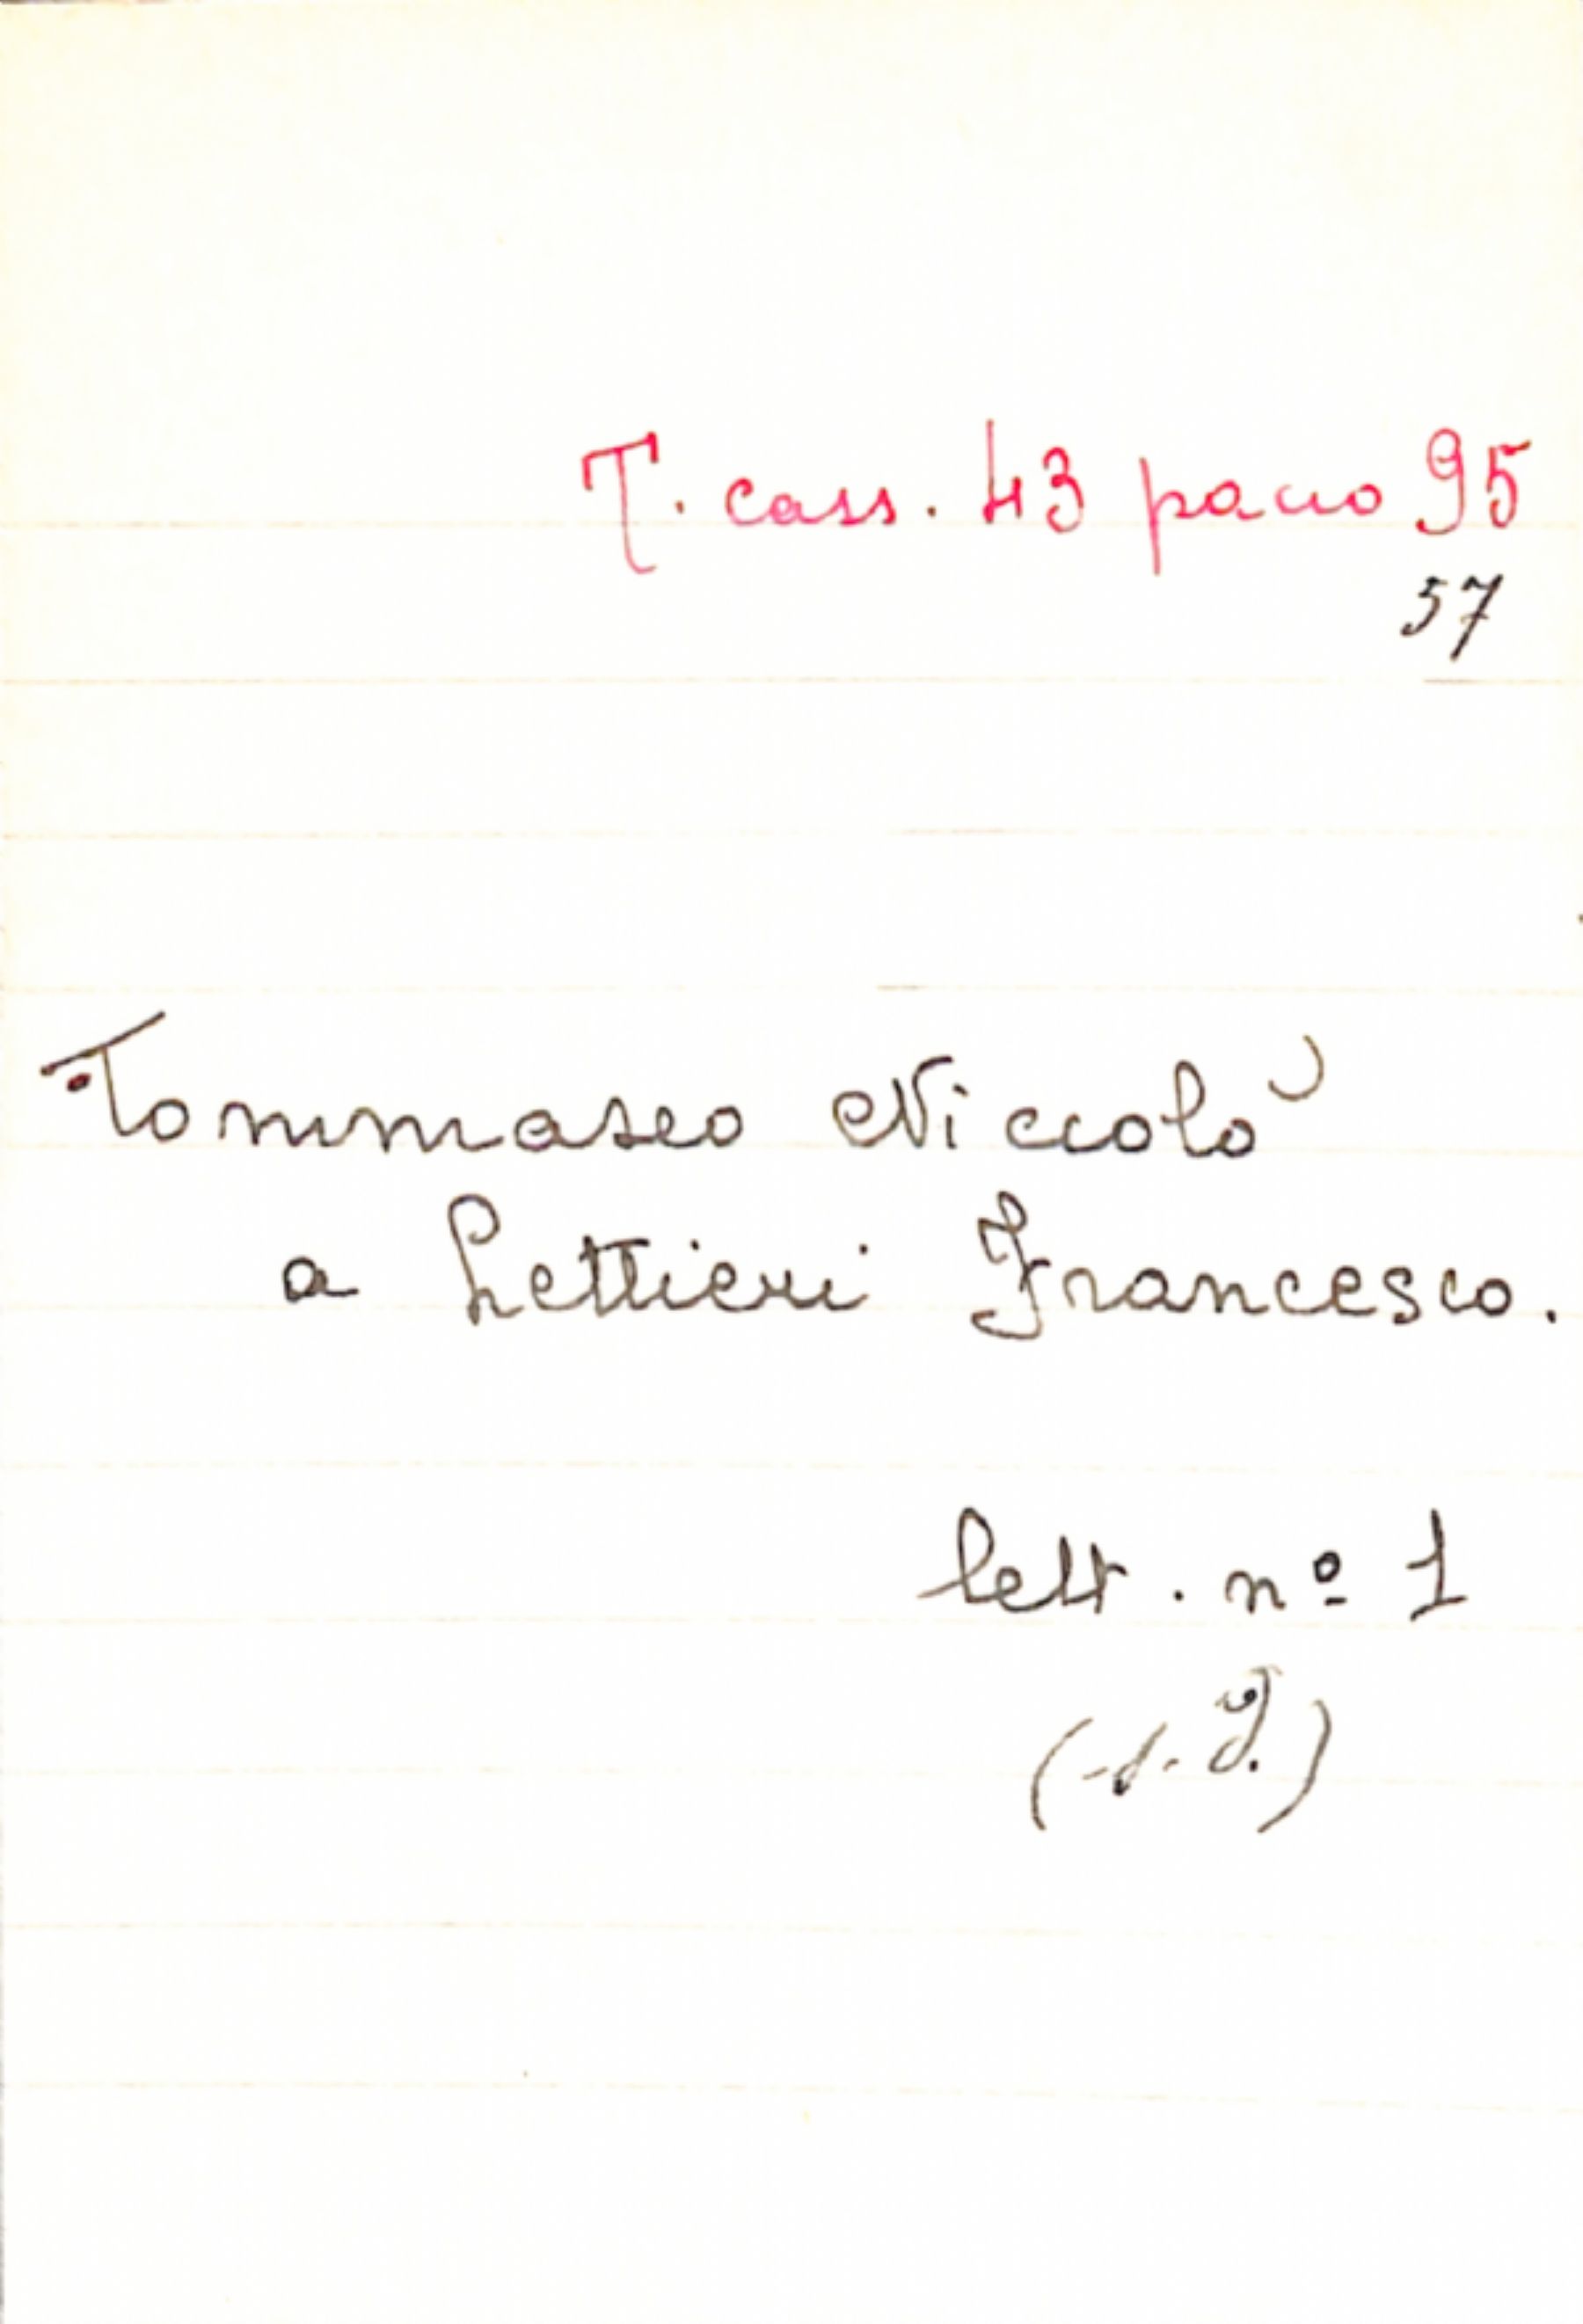 T. cass. 43 pacco 95
57
Tommaseo Niccolò
a Lettieri Francesco.
lett. nº 1